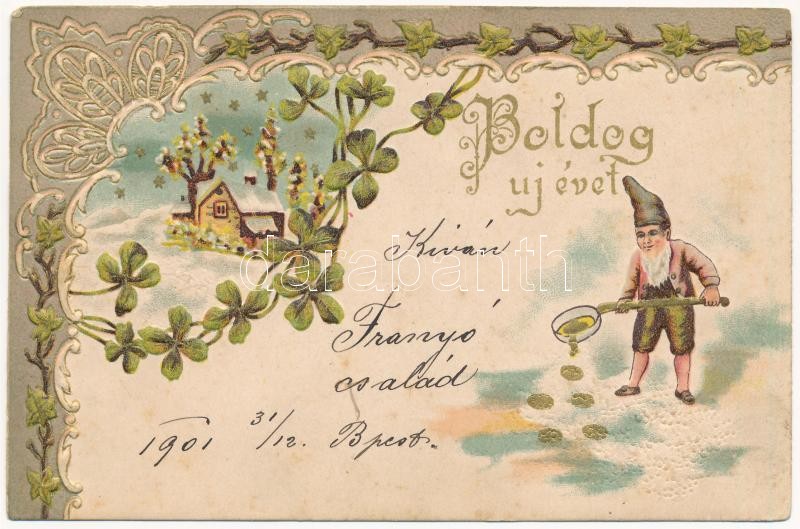 Boldog
uj évet
Kiván
Franyó
család
1901 31/12. Bpest.
darabanth